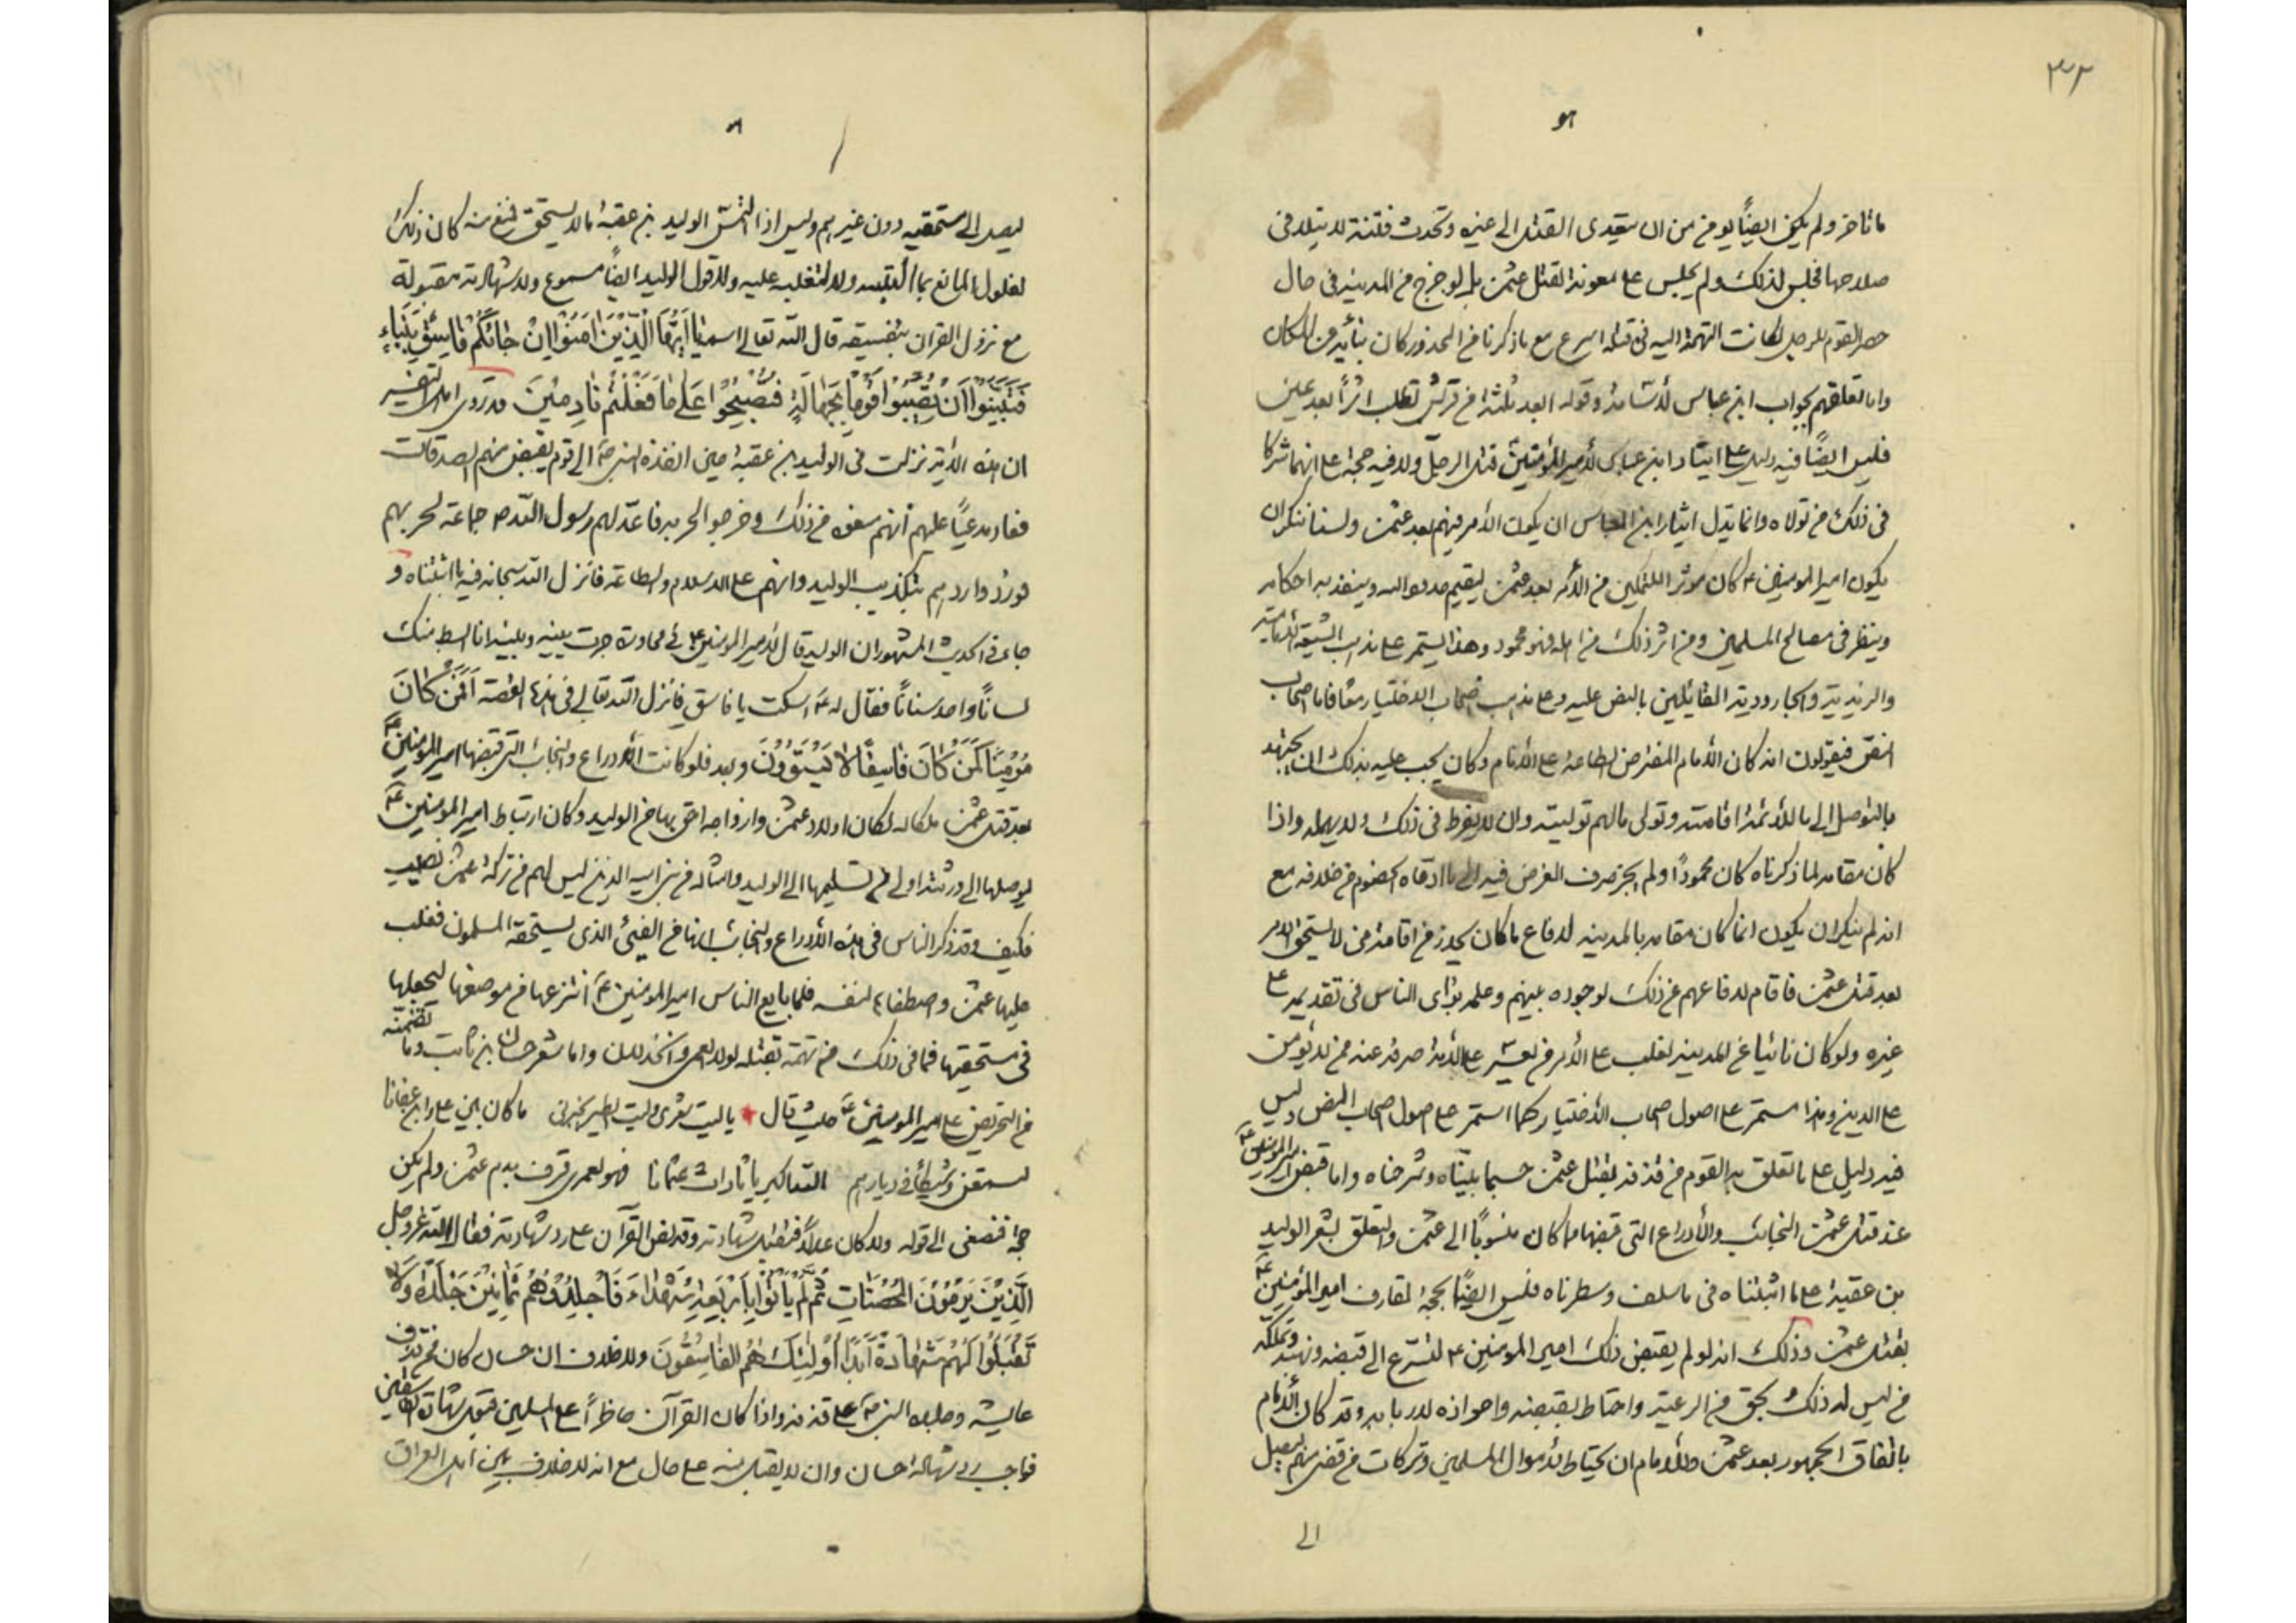 ٣٢
هو
ما تأخر ولم يكن ايضاً يؤمن من ان يتعدى القتل الى غيره وتحدث فتنة لا يتلافى
صلاحها فجلس لذلك ولم يجلس على معونة لقتل عثمن بل لو خرج من المدينة في حال
حصر القوم للرجل لكانت التهمة اليه في قتله اسرع مع ما ذكرنا من المحذور كان
واما تعلقهم بجواب ابن عباس وقوله ابعد ثلثة من قريش تطلب اثراً بعد عين
فليس ايضاً فيه دليل على ايثار ابن عباس لأمير المؤمنين قتل الرجل ولا فيه حجة على انهما شركا
في ذلك من تولاه وانما يدل ايثار ابن العباس ان يكون الأمر فيهم بعد عثمن ولسنا ننكر ان
يكون امير المومنين ع كان مؤثراً للتمكين من الأمر بعد عثمن ليقيم حدود الله وينفذ به احكامه
وينظر في مصالح المسلمين ومن اثر ذلك من اهله فهو محمود وهذا يستمر على مذاهب الشيعة الأمامية
والزيدية والجارودية القائلين بالنص عليه وعلى مذهب اصحاب الاختيار معاً فاما اصحاب
النص فيقولون انه كان الأمام المفترض الطاعة على الأنام وكان يجب عليه بذلك ان يجتهد
بالتوصل الى ما للأئمة اقامته وتولى مالهم توليته وان لا يفرط في ذلك ولا يهمله واذا
كان مقامه لما ذكرناه كان محموداً ولم يجز صرف الغرض فيه الى ما ادعاه الخصوم من خلافه مع
انه لم ينكر ان يكون انما كان مقامه بالمدينه لدفاع ما كان يحذر من اقامة من لا يستحق الامر
بعد قتل عثمن فاقام لدفاعهم عن ذلك لوجوده بينهم وعلمه براى الناس في تقديمه على
غيره ولو كان نائيا عن المدينه لغلب على الأمر من يعسر على الأمة صرفه عنه ممن لا يؤمن
على الدين وهذا مستمر على اصول اصحاب الأختيار كما استمر على اصول اصحاب النص وليس
فيه دليل على ما تعلق به القوم من قذفه بقتل عثمن حسبما بيناه وشرحناه واما قبض امير المومنين ع
عند قتل عثمن النجائب والأدراع التي قبضها مما كان منسوباً الى عثمن والتعلق بشعر الوليد
بن عقبة على ما اثبتناه في ما سلف وسطرناه فليس ايضاً بحجة لقارف امير المؤمنين ع
بقتل عثمن وذلك انه لو لم يقبض ذلك امير المومنين ع لتسرع الى قبضه ونهبه وتملكه
من ليس له ذلك بحق من الرعية واحتاط بقبضه واحرازه لأربابه وقد كان الأمام
باتفاق الجمهور بعد عثمن وللأمام ان يحتاط لأموال المسلمين وتركات من قضى منهم ليصل
الى
ليصل الى مستحقيه دون غيرهم وليس اذا التمس الوليد بن عقبة ما لا يستحق فمنع منه كان ذلك
لغلول المانع بما التمسه ولا لتغلبه عليه ولا قول الوليد ايضاً مسموع ولا شهادته مقبولة
مع نزول القرآن بتفسيقه قال الله تعالى اسمه يا أَيُّهَا الَّذِينَ امَنُوا اِنْ جَائَكُمْ فَاسِقٌ بِنَبَاءٍ
فَتَبَيَّنُوا اَنْ تُصِيبُوا قَوْماً بِجَهَالَةٍ فَتُصْبِحُوا عَلَى مَا فَعَلْتُمْ نَادِمِينَ وقد روى اهل التفسير
ان هذه الأية نزلت في الوليد بن عقبة حين انفذه النبي ص الى قوم يقبض منهم الصدقات
فعاد مدعياً عليهم أنهم منعوه من ذلك وخرجوا لحربه فاعد لهم رسول الله ص جماعة لحربهم
فورد واردهم بتكذيب الوليد وانهم على الاسلام والطاعة فانزل الله سبحانه فيه ما اثبتناه و
جاء في الحديث المشهور ان الوليد قال لأمير المومنين ع في محاورة جرت بينه وبينه انا ابسط منك
لساناً واحد سناناً فقال له ع اسكت يا فاسق فانزل الله تعالى في هذه القصة اَفَمَنْ كَانَ
مُؤْمِناً كَمَنْ كَانَ فَاسِقاً لَا يَسْتَوُونَ وبعد فلو كانت الأدراع والنجائب التي قبضها امير المومنين ع
بعد قتل عثمن ملكا له لكان اولاد عثمن وازواجه احق بها من الوليد وكان ارتباط امير المومنين ع
ليوصلها الى ورثته اولى من تسليمها الى الوليد وامثاله من بنى اميه الذين ليس لهم من تركة عثمن نصيب
فكيف وقد ذكر الناس في هذه الأدراع والنجائب انها من الفيئ الذى يستحقه المسلمون فغلب
عليها عثمن واصطفاها لنفسه فلما بايع الناس امير المومنين ع انتزعها من موضعها ليجعلها
في مستحقيها فما في ذلك من تهمة بقتله لولا العمى والخذلان واما شعر حسان بن ثابت وما تضمنه
من التحريض على امير المومنين ع حيث قال يا ليت شعرى وليت الطير تخبرنى ما كان بين على وابن عفانا
لتسمعن وشيكاً في ديارهم الله اكبر يا ثارات عثمانا فهو لعمرى قرف بدم عثمن ولم يكن
حجة فيصغى الى قوله ولا كان عدلاً فتقبل شهادته وقد نص القرآن على رد شهادته فقال الله عز وجل
الَّذِينَ يَرْمُونَ الْمُحْصَنَاتِ ثُمَّ لَمْ يَأْتُوا بِأَرْبَعَةِ شُهَدَاءَ فَاجْلِدُوهُمْ ثَمَانِينَ جَلْدَةً وَلَا
تَقْبَلُوا لَهُمْ شَهَادَةً اَبَداً اُوْلَئِكَ هُمُ الْفَاسِقُونَ ولا خلاف ان حسان كان ممن قذف
عايشه وجلده النبي ص على قذفه واذا كان القرآن حاظراً على المسلمين قبول شهادة الفاسقين
فواجب رد شهادة حسان وان لا يقبل منه على حال مع انه لا خلاف بين اهل العراق